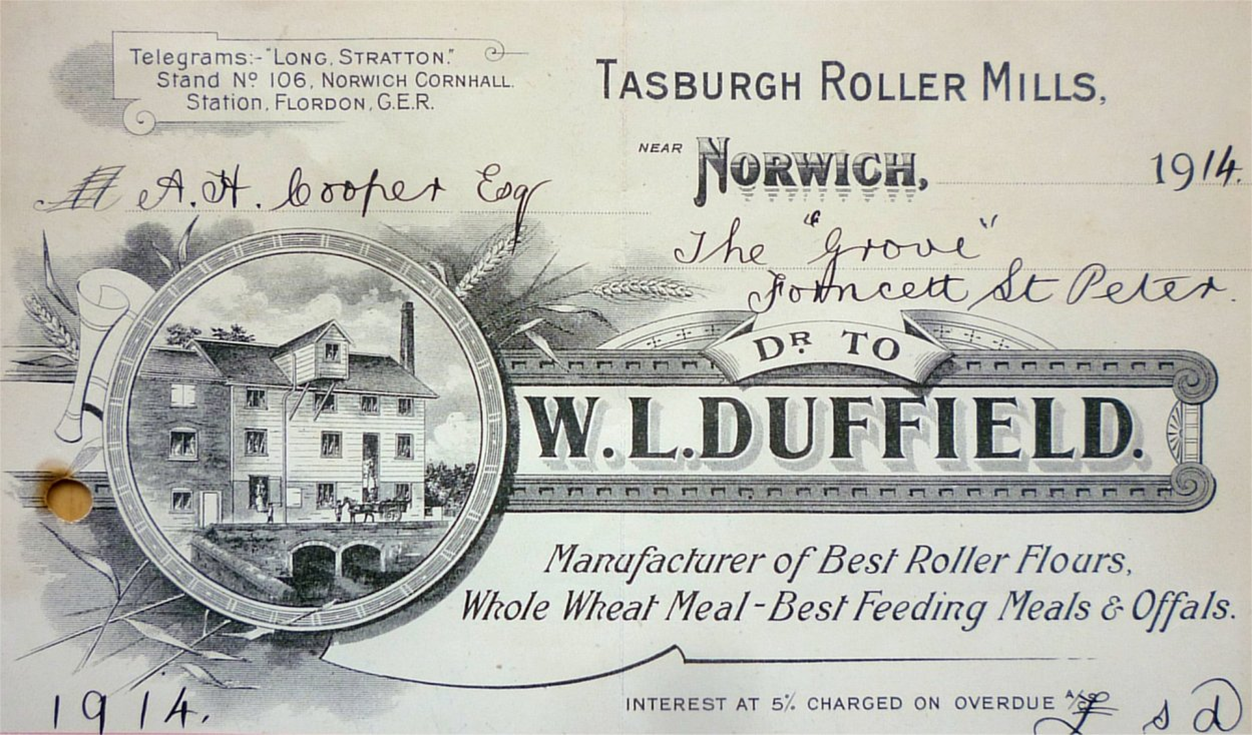 Telegrams:- "LONG, STRATTON."
Stand No. 106, NORWICH CORNHALL.
Station, FLORDON, G.E.R.
TASBURGH ROLLER MILLS,
NEAR NORWICH, 1914.
A. H. Cooper Esq
The "Grove"
Forncett St Peter.
DR. TO
W. L. DUFFIELD.
Manufacturer of Best Roller Flours,
Whole Wheat Meal - Best Feeding Meals & Offals.
INTEREST AT 5% CHARGED ON OVERDUE A/cs
1914. £ s D